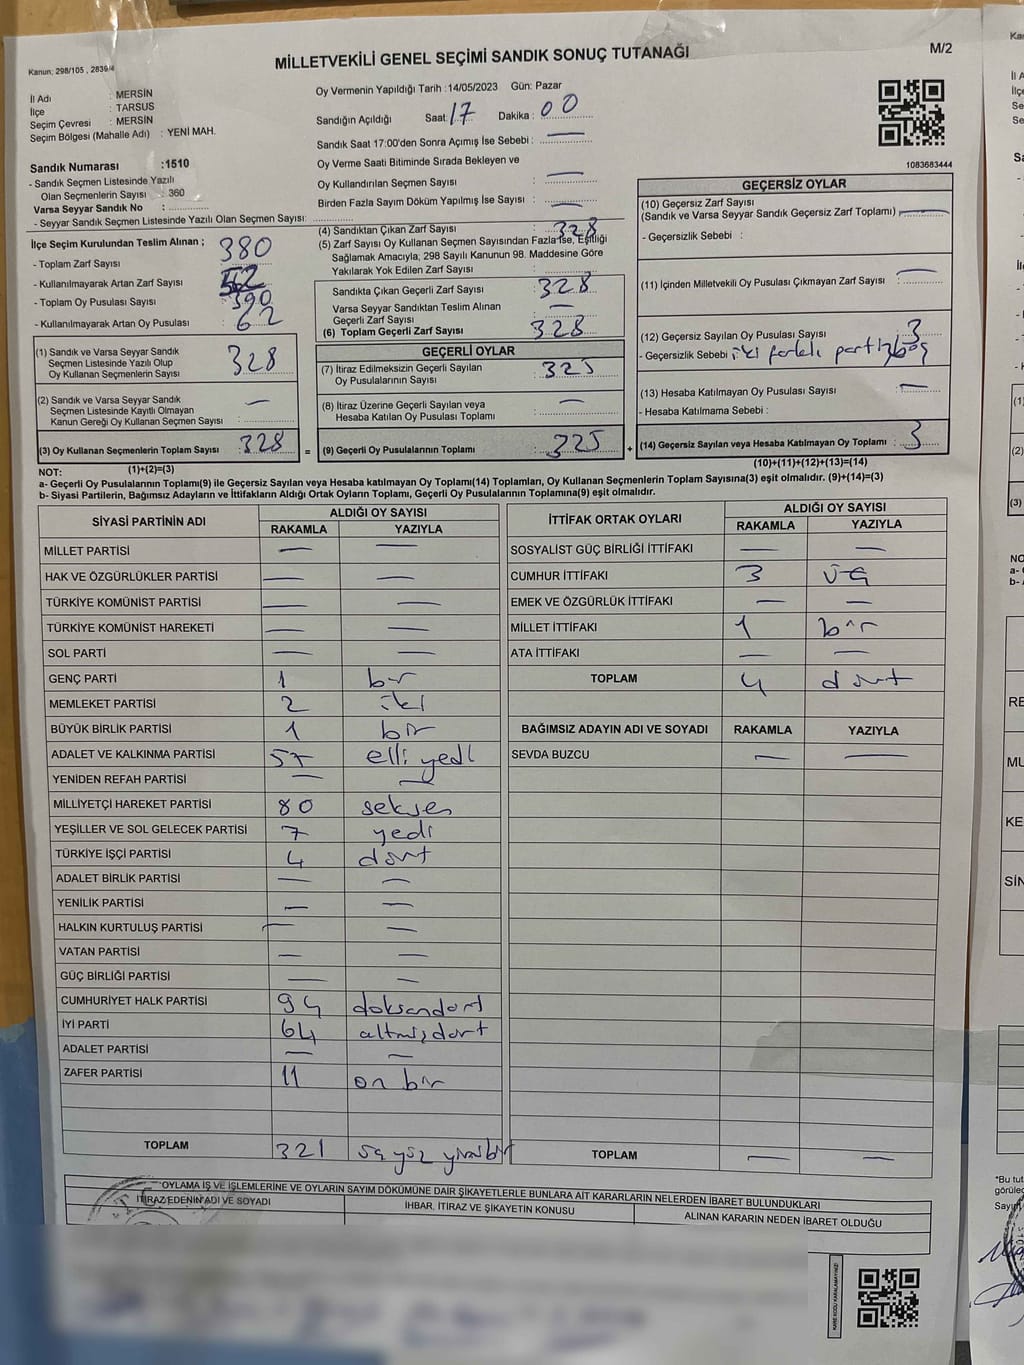 MİLLETVEKİLİ GENEL SEÇİMİ SANDIK SONUÇ TUTANAĞI
M/2
Kanun; 298/105 , 2839/4
İl Adı : MERSİN
İlçe : TARSUS
Seçim Çevresi : MERSİN
Seçim Bölgesi (Mahalle Adı) : YENİ MAH.
Sandık Numarası :1510
- Sandık Seçmen Listesinde Yazılı
Olan Seçmenlerin Sayısı : 360
Varsa Seyyar Sandık No :
- Seyyar Sandık Seçmen Listesinde Yazılı Olan Seçmen Sayısı:
Oy Vermenin Yapıldığı Tarih :14/05/2023 Gün: Pazar
Sandığın Açıldığı Saat: 17 Dakika : 00
Sandık Saat 17:00'den Sonra Açımış İse Sebebi : —
Oy Verme Saati Bitiminde Sırada Bekleyen ve
Oy Kullandırılan Seçmen Sayısı : —
Birden Fazla Sayım Döküm Yapılmış İse Sayısı : —
1083683444
İlçe Seçim Kurulundan Teslim Alınan ;
- Toplam Zarf Sayısı : 380
- Kullanılmayarak Artan Zarf Sayısı : 52
- Toplam Oy Pusulası Sayısı : 390
- Kullanılmayarak Artan Oy Pusulası : 62
(1) Sandık ve Varsa Seyyar Sandık
Seçmen Listesinde Yazılı Olup
Oy Kullanan Seçmenlerin Sayısı : 328
(2) Sandık ve Varsa Seyyar Sandık
Seçmen Listesinde Kayıtlı Olmayan
Kanun Gereği Oy Kullanan Seçmen Sayısı : —
(3) Oy Kullanan Seçmenlerin Toplam Sayısı : 328 =
(4) Sandıktan Çıkan Zarf Sayısı : 328
(5) Zarf Sayısı Oy Kullanan Seçmen Sayısından Fazla İse, Eşitliği
Sağlamak Amacıyla, 298 Sayılı Kanunun 98. Maddesine Göre
Yakılarak Yok Edilen Zarf Sayısı :
Sandıkta Çıkan Geçerli Zarf Sayısı : 328
Varsa Seyyar Sandıktan Teslim Alınan
Geçerli Zarf Sayısı : —
(6) Toplam Geçerli Zarf Sayısı : 328
GEÇERLİ OYLAR
(7) İtiraz Edilmeksizin Geçerli Sayılan
Oy Pusulalarının Sayısı : 325
(8) İtiraz Üzerine Geçerli Sayılan veya
Hesaba Katılan Oy Pusulası Toplamı : —
(9) Geçerli Oy Pusulalarının Toplamı : 325 +
GEÇERSİZ OYLAR
(10) Geçersiz Zarf Sayısı
(Sandık ve Varsa Seyyar Sandık Geçersiz Zarf Toplamı) : —
- Geçersizlik Sebebi :
(11) İçinden Milletvekili Oy Pusulası Çıkmayan Zarf Sayısı : —
(12) Geçersiz Sayılan Oy Pusulası Sayısı : 3
- Geçersizlik Sebebi : iki farklı parti,boş
(13) Hesaba Katılmayan Oy Pusulası Sayısı : —
- Hesaba Katılmama Sebebi :
(14) Geçersiz Sayılan veya Hesaba Katılmayan Oy Toplamı : 3
NOT: (1)+(2)=(3)
(10)+(11)+(12)+(13)=(14)
a- Geçerli Oy Pusulalarının Toplamı(9) ile Geçersiz Sayılan veya Hesaba katılmayan Oy Toplamı(14) Toplamları, Oy Kullanan Seçmenlerin Toplam Sayısına(3) eşit olmalıdır. (9)+(14)=(3)
b- Siyasi Partilerin, Bağımsız Adayların ve İttifakların Aldığı Ortak Oyların Toplamı, Geçerli Oy Pusulalarının Toplamına(9) eşit olmalıdır.
SİYASİ PARTİNİN ADI ALDIĞI OY SAYISI
RAKAMLA YAZIYLA
MİLLET PARTİSİ — —
HAK VE ÖZGÜRLÜKLER PARTİSİ — —
TÜRKİYE KOMÜNİST PARTİSİ — —
TÜRKİYE KOMÜNİST HAREKETİ — —
SOL PARTİ — —
GENÇ PARTİ 1 bir
MEMLEKET PARTİSİ 2 iki
BÜYÜK BİRLİK PARTİSİ 1 bir
ADALET VE KALKINMA PARTİSİ 57 elli yedi
YENİDEN REFAH PARTİSİ — —
MİLLİYETÇİ HAREKET PARTİSİ 80 seksen
YEŞİLLER VE SOL GELECEK PARTİSİ 7 yedi
TÜRKİYE İŞÇİ PARTİSİ 4 dört
ADALET BİRLİK PARTİSİ — —
YENİLİK PARTİSİ — —
HALKIN KURTULUŞ PARTİSİ — —
VATAN PARTİSİ — —
GÜÇ BİRLİĞİ PARTİSİ — —
CUMHURİYET HALK PARTİSİ 94 doksandört
İYİ PARTİ 64 altmışdört
ADALET PARTİSİ — —
ZAFER PARTİSİ 11 on bir
TOPLAM 321
İTTİFAK ORTAK OYLARI ALDIĞI OY SAYISI
RAKAMLA YAZIYLA
SOSYALİST GÜÇ BİRLİĞİ İTTİFAKI — —
CUMHUR İTTİFAKI 3 üç
EMEK VE ÖZGÜRLÜK İTTİFAKI — —
MİLLET İTTİFAKI 1 bir
ATA İTTİFAKI — —
TOPLAM 4 dört
BAĞIMSIZ ADAYIN ADI VE SOYADI RAKAMLA YAZIYLA
SEVDA BUZCU — —
TOPLAM — —
OYLAMA İŞ VE İŞLEMLERİNE VE OYLARIN SAYIM DÖKÜMÜNE DAİR ŞİKAYETLERLE BUNLARA AİT KARARLARIN NELERDEN İBARET BULUNDUKLARI
İTİRAZ EDENİN ADI VE SOYADI
İHBAR, İTİRAZ VE ŞİKAYETİN KONUSU
ALINAN KARARIN NEDEN İBARET OLDUĞU
KARE KODU KARALAMAYINIZ!